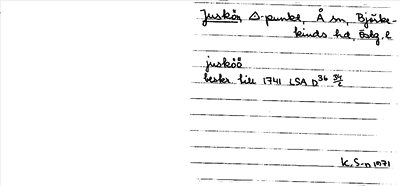 Juskön, △-punkt, Å sn, Björke-
kinds hd, Öslg. l
jusköö
beskr till 1741 LSA D36 34/2
K. S-n 1971